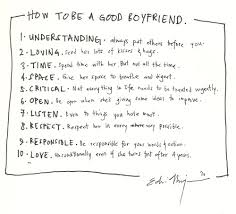 HOW TO BE A GOOD BOYFRIEND.
1. UNDERSTANDING. always put others before you.
2. LOVING. Send her lots of kisses & hugs.
3. TIME. Spend time with her. But not all the time.
4. SPACE. Give her space to breathe and
5. CRITICAL. Not everything in life needs to be treated urgently.
6. OPEN. Be open when she's giving some ideas to improve.
7. LISTEN. Even to things you hate most.
8. RESPECT. Respect her in every way possible.
9. RESPONSIBLE. Be responsible for your words & actions.
10. LOVE. Unconditionally even if she turns fat after years.